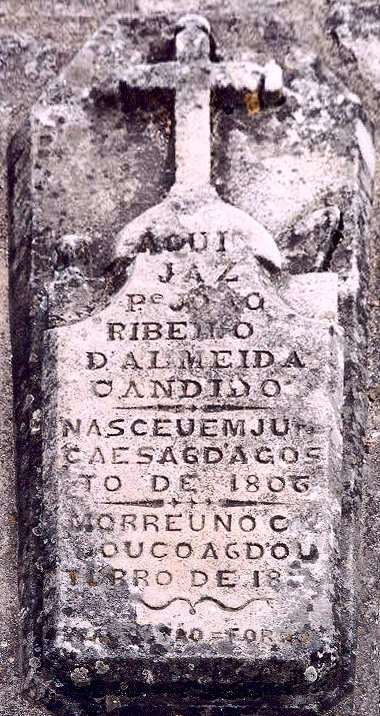 AQUI
JAZ
Pᵉ JOÃO
RIBEIRO
D'ALMEIDA
CANDIDO
NASCEU EM JUN
CAES A 6 D'AGOS
TO DE 1806
MORREU NO
OUCO A 6 D'OU
TUBRO DE 18